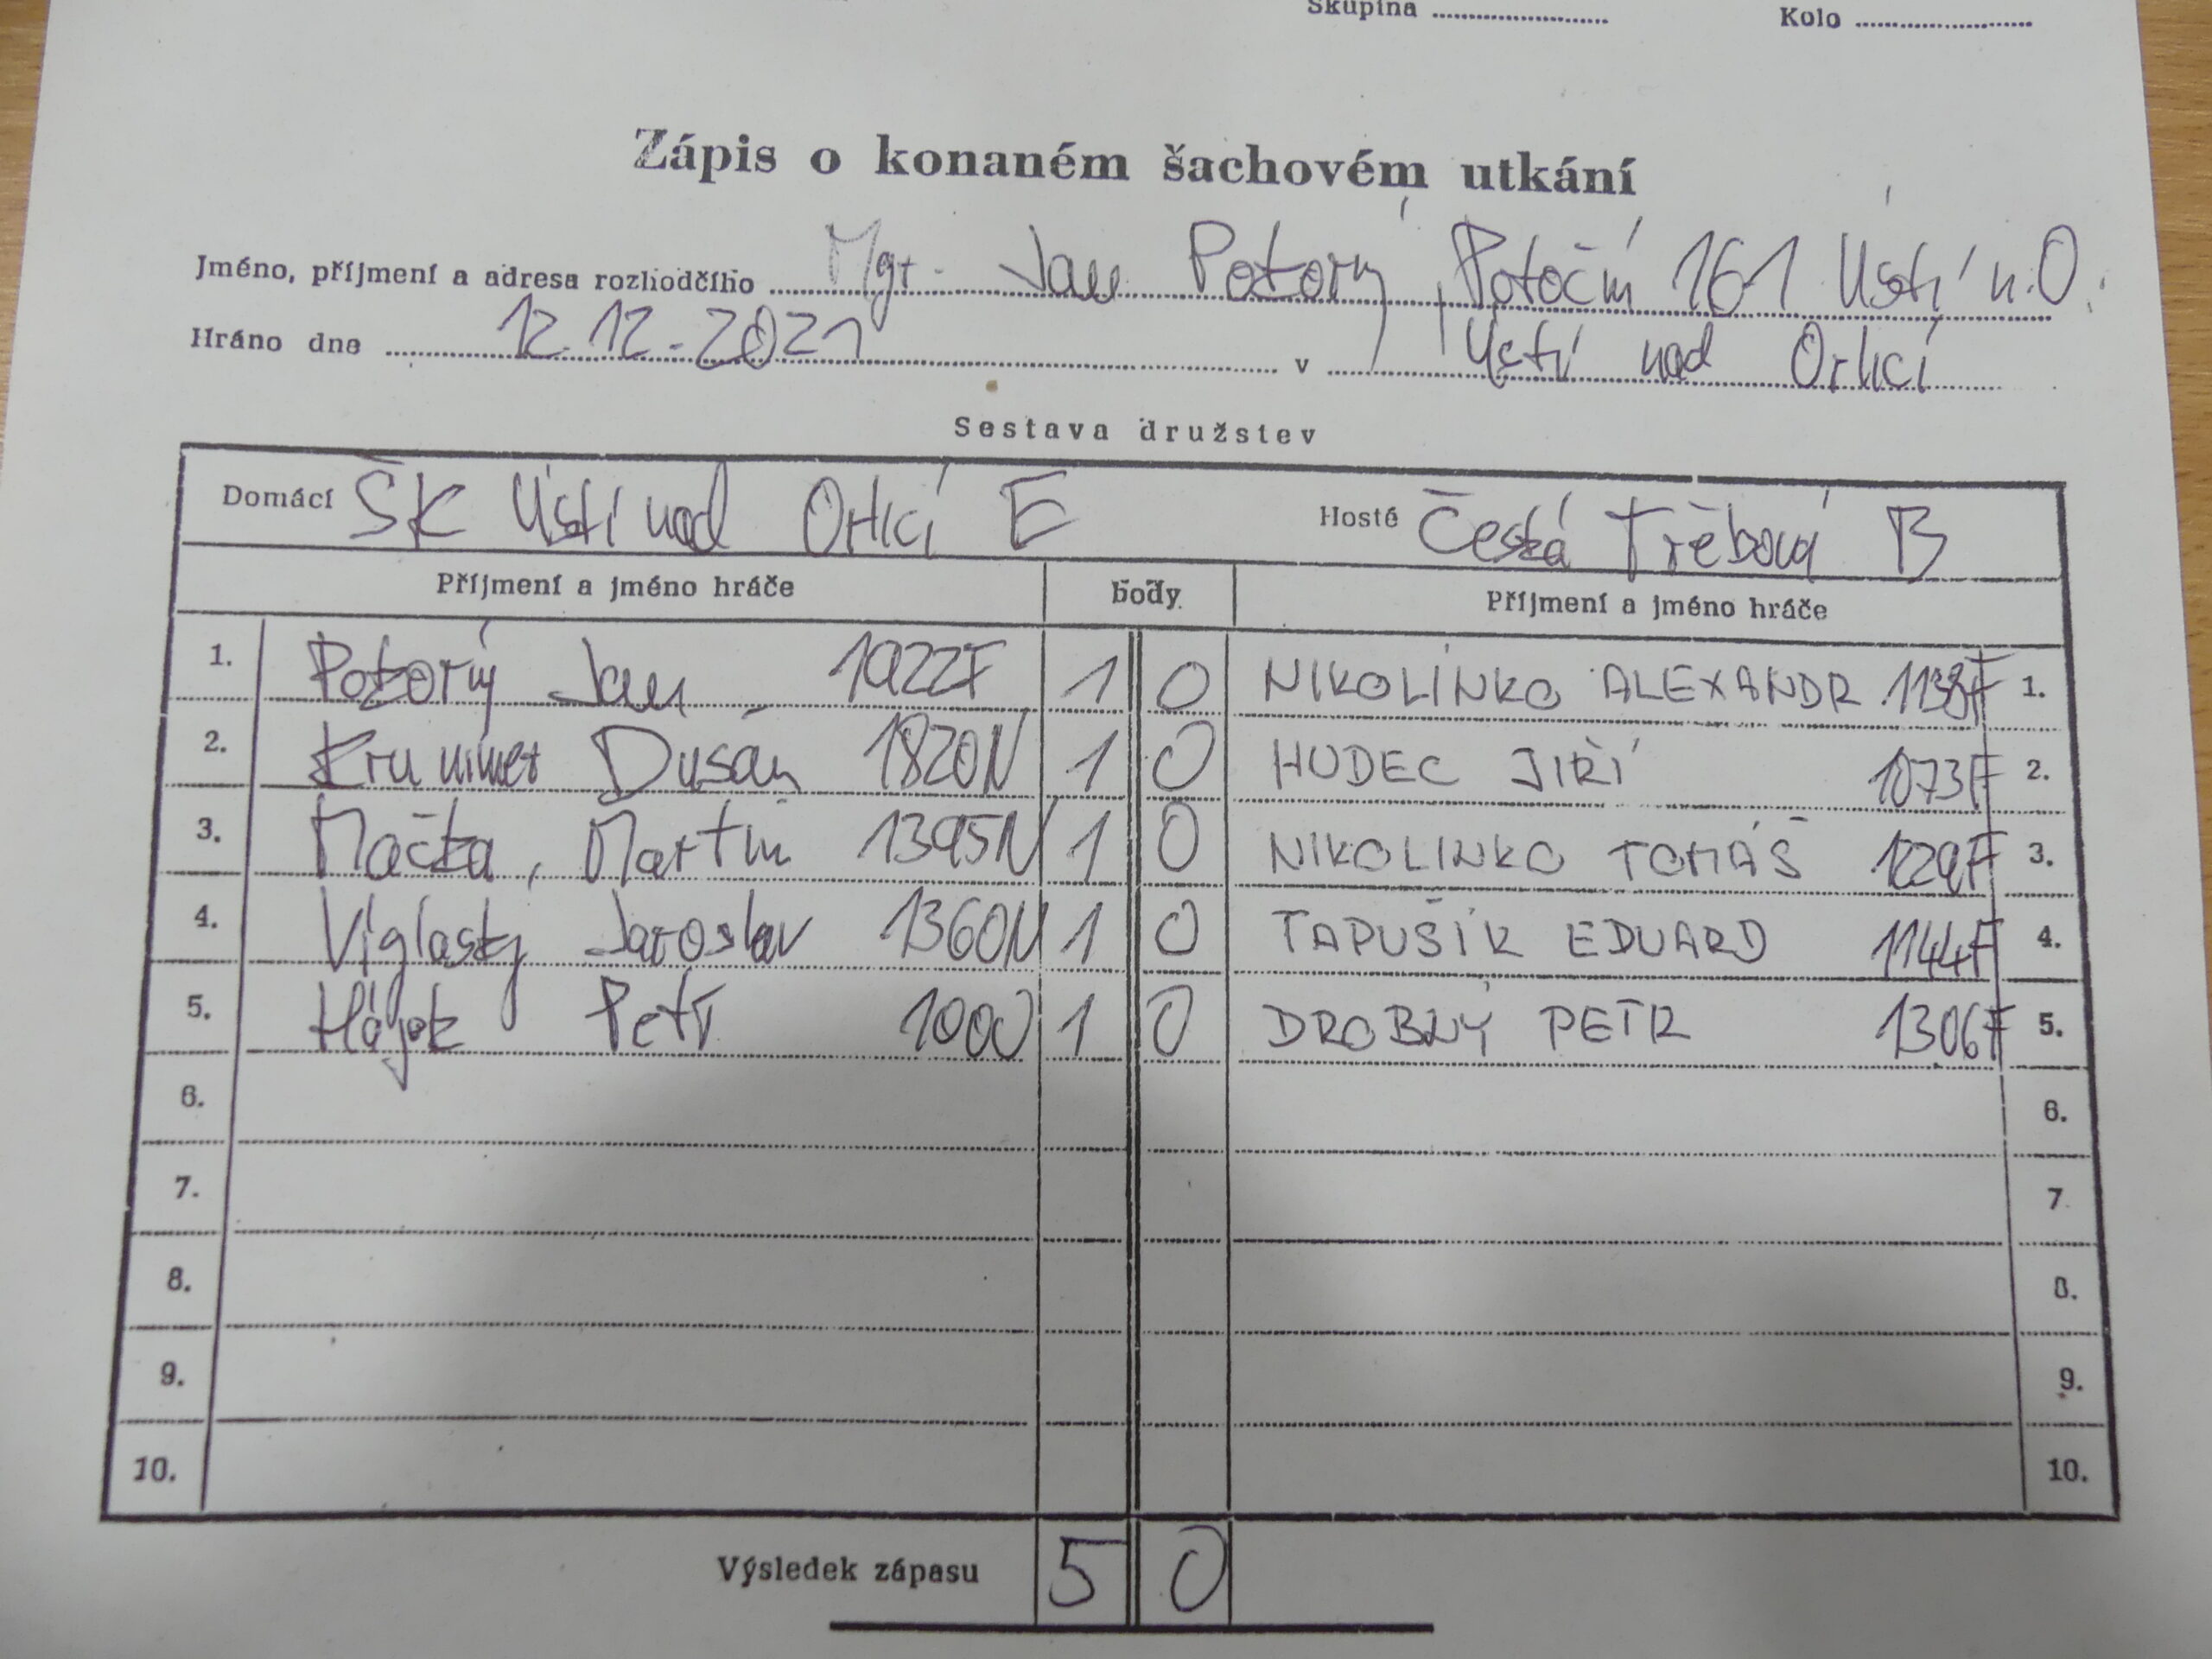 Skupina Kolo
Zápis o konaném šachovém utkání
Jméno, příjmení a adresa rozhodčího Mgr. Jan Pokorný, Potoční 161 Ústí n.O.
Hráno dne 12.12.2021 v Ústí nad Orlicí
Sestava družstev
Domácí ŠK Ústí nad Orlicí E Hosté Česká Třebová B
Příjmení a jméno hráče body Příjmení a jméno hráče
1. Pokorný Jan 1922F 1 0 NIKOLINKO ALEXANDR 1138F 1.
2. Krummer Dušan 1820N 1 0 HUDEC JIŘÍ 1073F 2.
3. Mačka, Martin 1395N 1 0 NIKOLINKO TOMÁŠ 1229F 3.
4. Víglaský Jaroslav 1360N 1 0 TAPUŠÍK EDUARD 1144F 4.
5. Hájek Petr 1000 1 0 DROBNÝ PETR 1306F 5.
6. 6.
7. 7
8. 8.
9. 9.
10. 10.
Výsledek zápasu 5 0